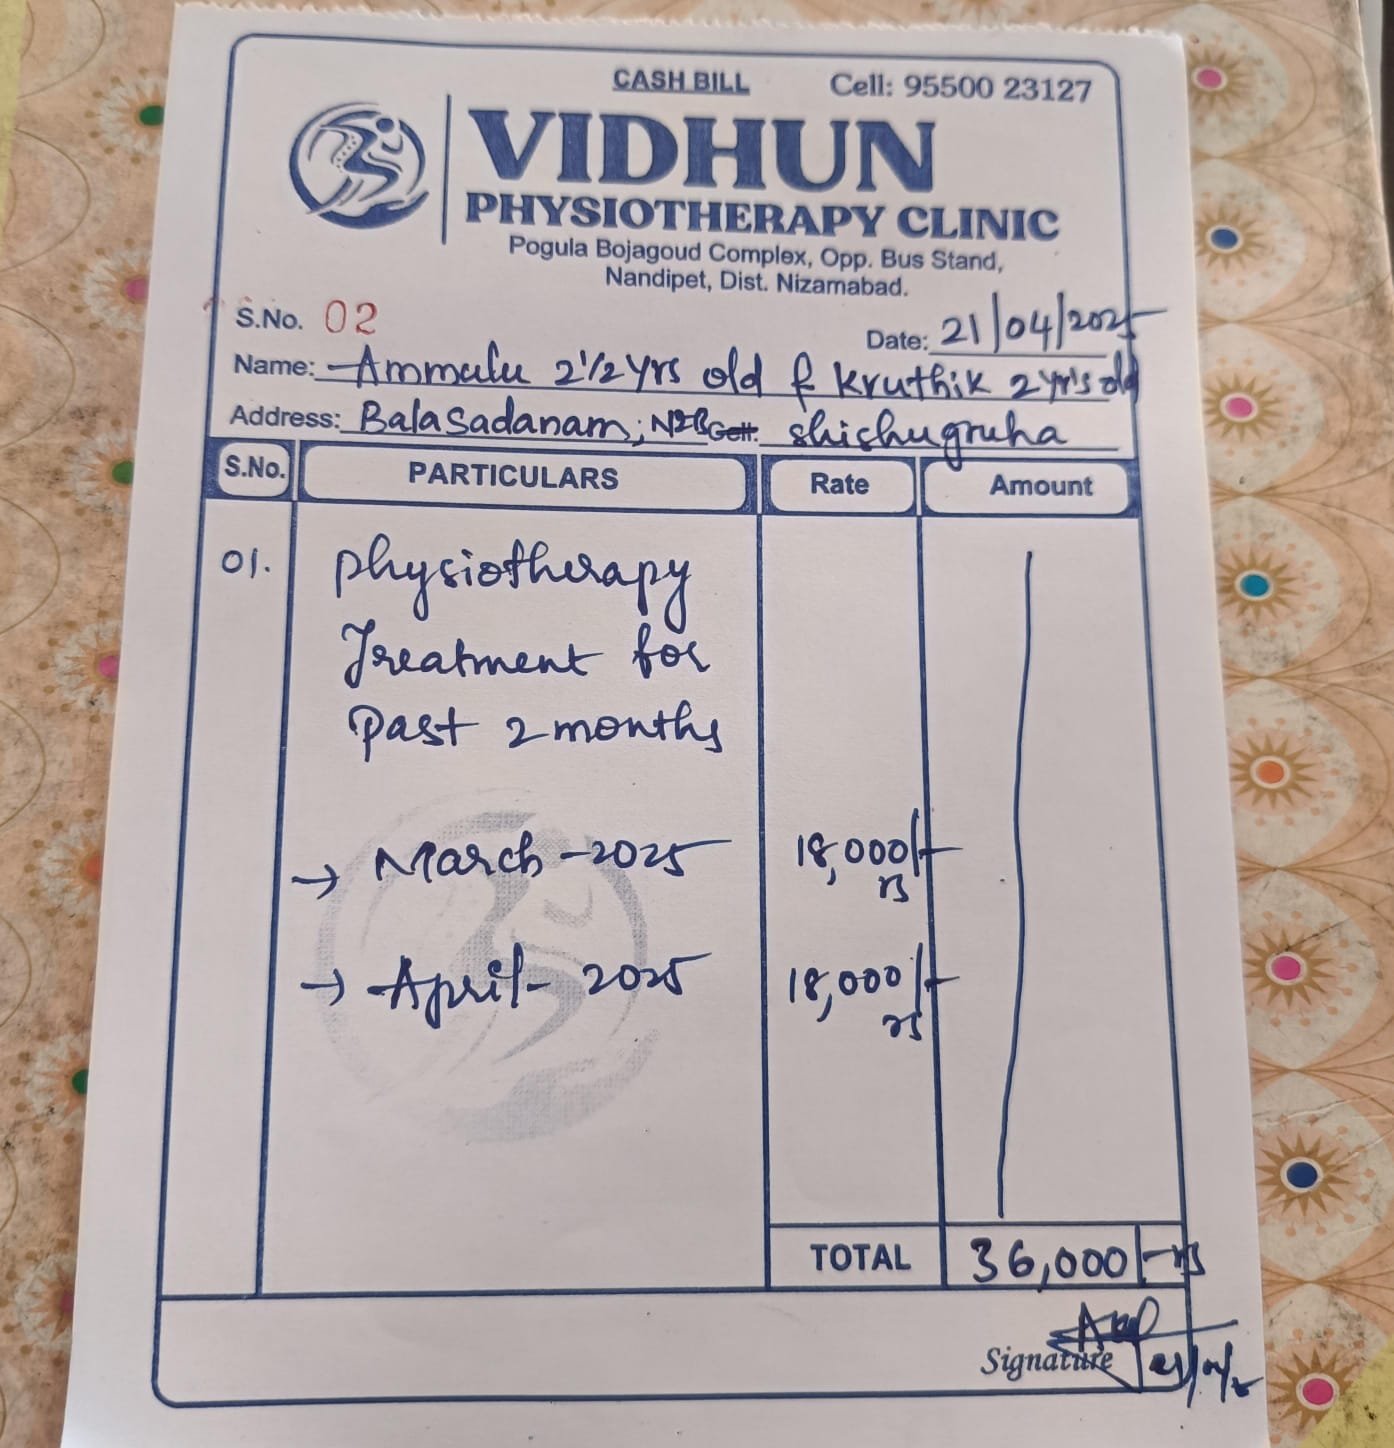 CASH BILL Cell: 95500 23127
VIDHUN
PHYSIOTHERAPY CLINIC
Pogula Bojagoud Complex, Opp. Bus Stand,
Nandipet, Dist. Nizamabad.
S.No. 02
Date: 21/04/2025
Name: Ammulu 2 1/2 yrs old & Kruthik 2 yr's old
Address: Balasadanam, NZB Shishugruha
S.No. PARTICULARS Rate Amount
01. physiotherapy
Treatment for
Past 2 months
→ March - 2025 18,000/-
rs
→ April - 2025 18,000/-
rs
TOTAL 36,000/- rs
Signature